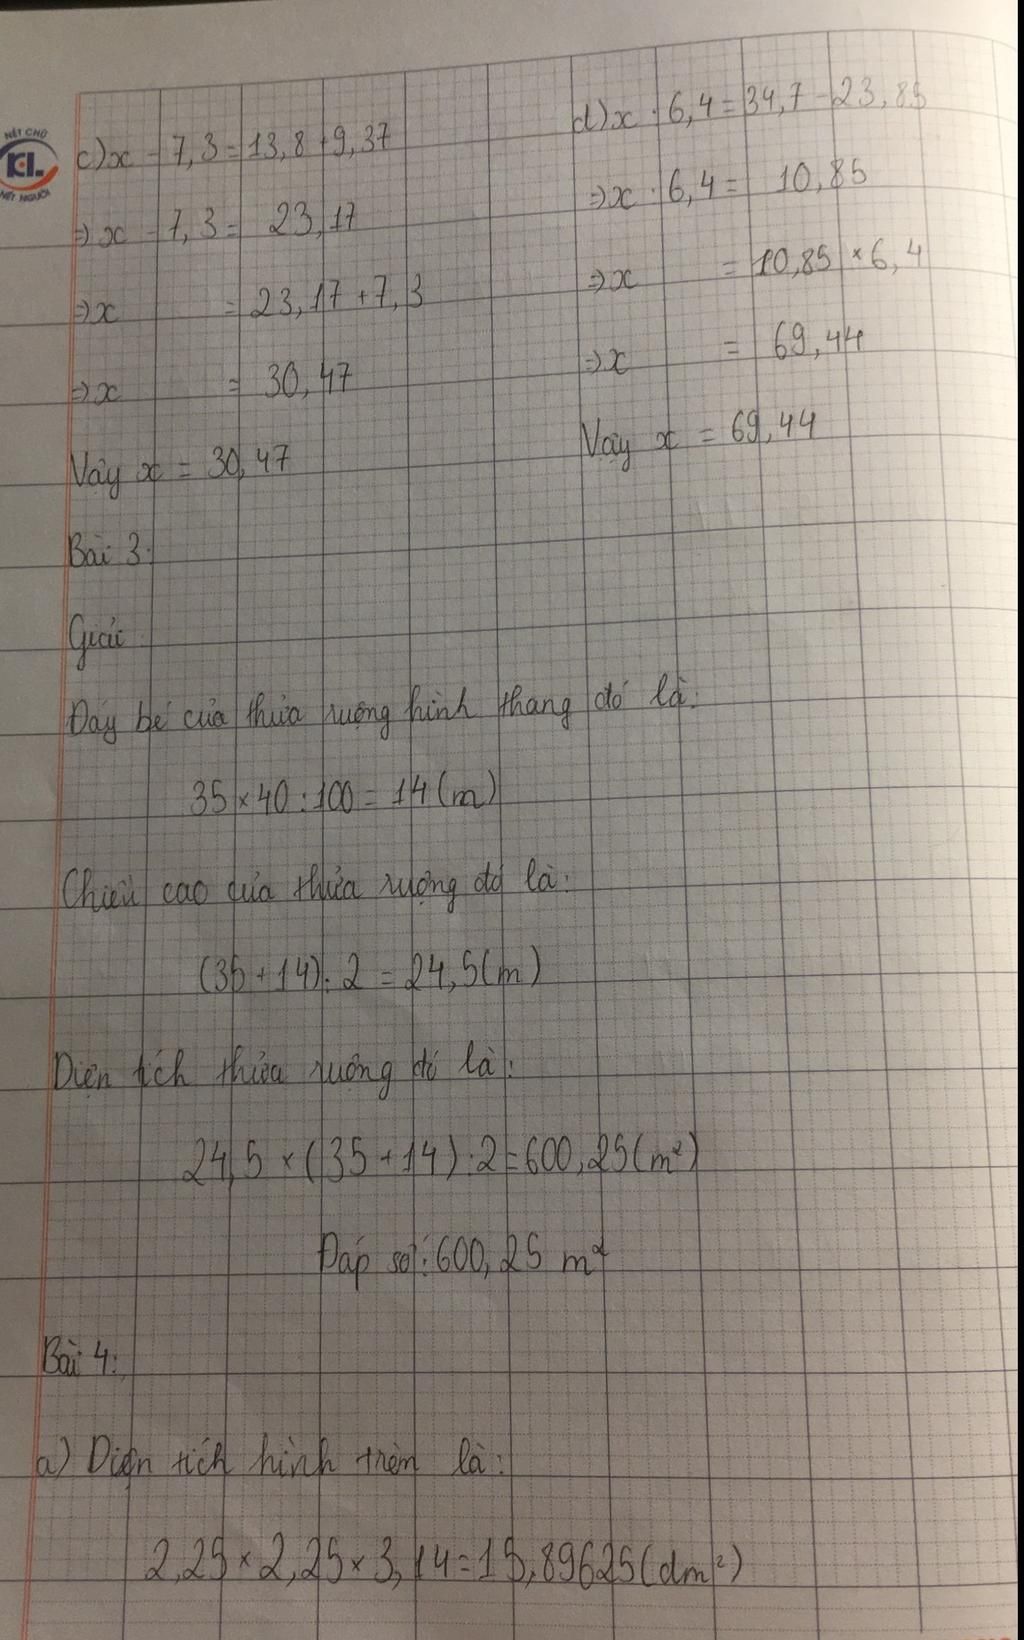 NÉT CHỮ
KL
NẾT NGƯỜI
c) x - 7,3 = 13,8 + 9,37
⇒ x - 7,3 = 23,17
⇒ x = 23,17 + 7,3
⇒ x = 30,47
Vậy x = 30,47
d) x : 6,4 = 34,7 - 23,85
⇒ x : 6,4 = 10,85
⇒ x = 10,85 × 6,4
⇒ x = 69,44
Vậy x = 69,44
Bài 3:
Giải
Đáy bé của thửa ruộng hình thang đó là:
35 × 40 : 100 = 14 (m)
Chiều cao của thửa ruộng đó là:
(35 + 14) : 2 = 24,5 (m)
Diện tích thửa ruộng đó là:
24,5 × (35 + 14) : 2 = 600,25 (m²)
Đáp số: 600,25 m²
Bài 4:
a) Diện tích hình tròn là:
2,25 × 2,25 × 3,14 = 15,89625 (dm²)